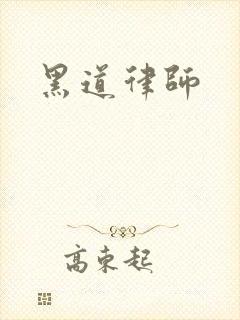 黑道律師
高東起